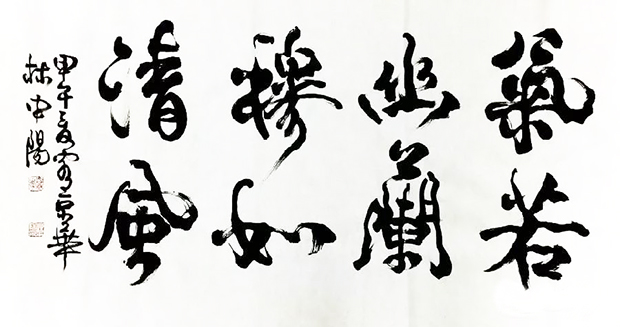 氣若
幽蘭
穆如
清風
甲午夏客京華
林中陽